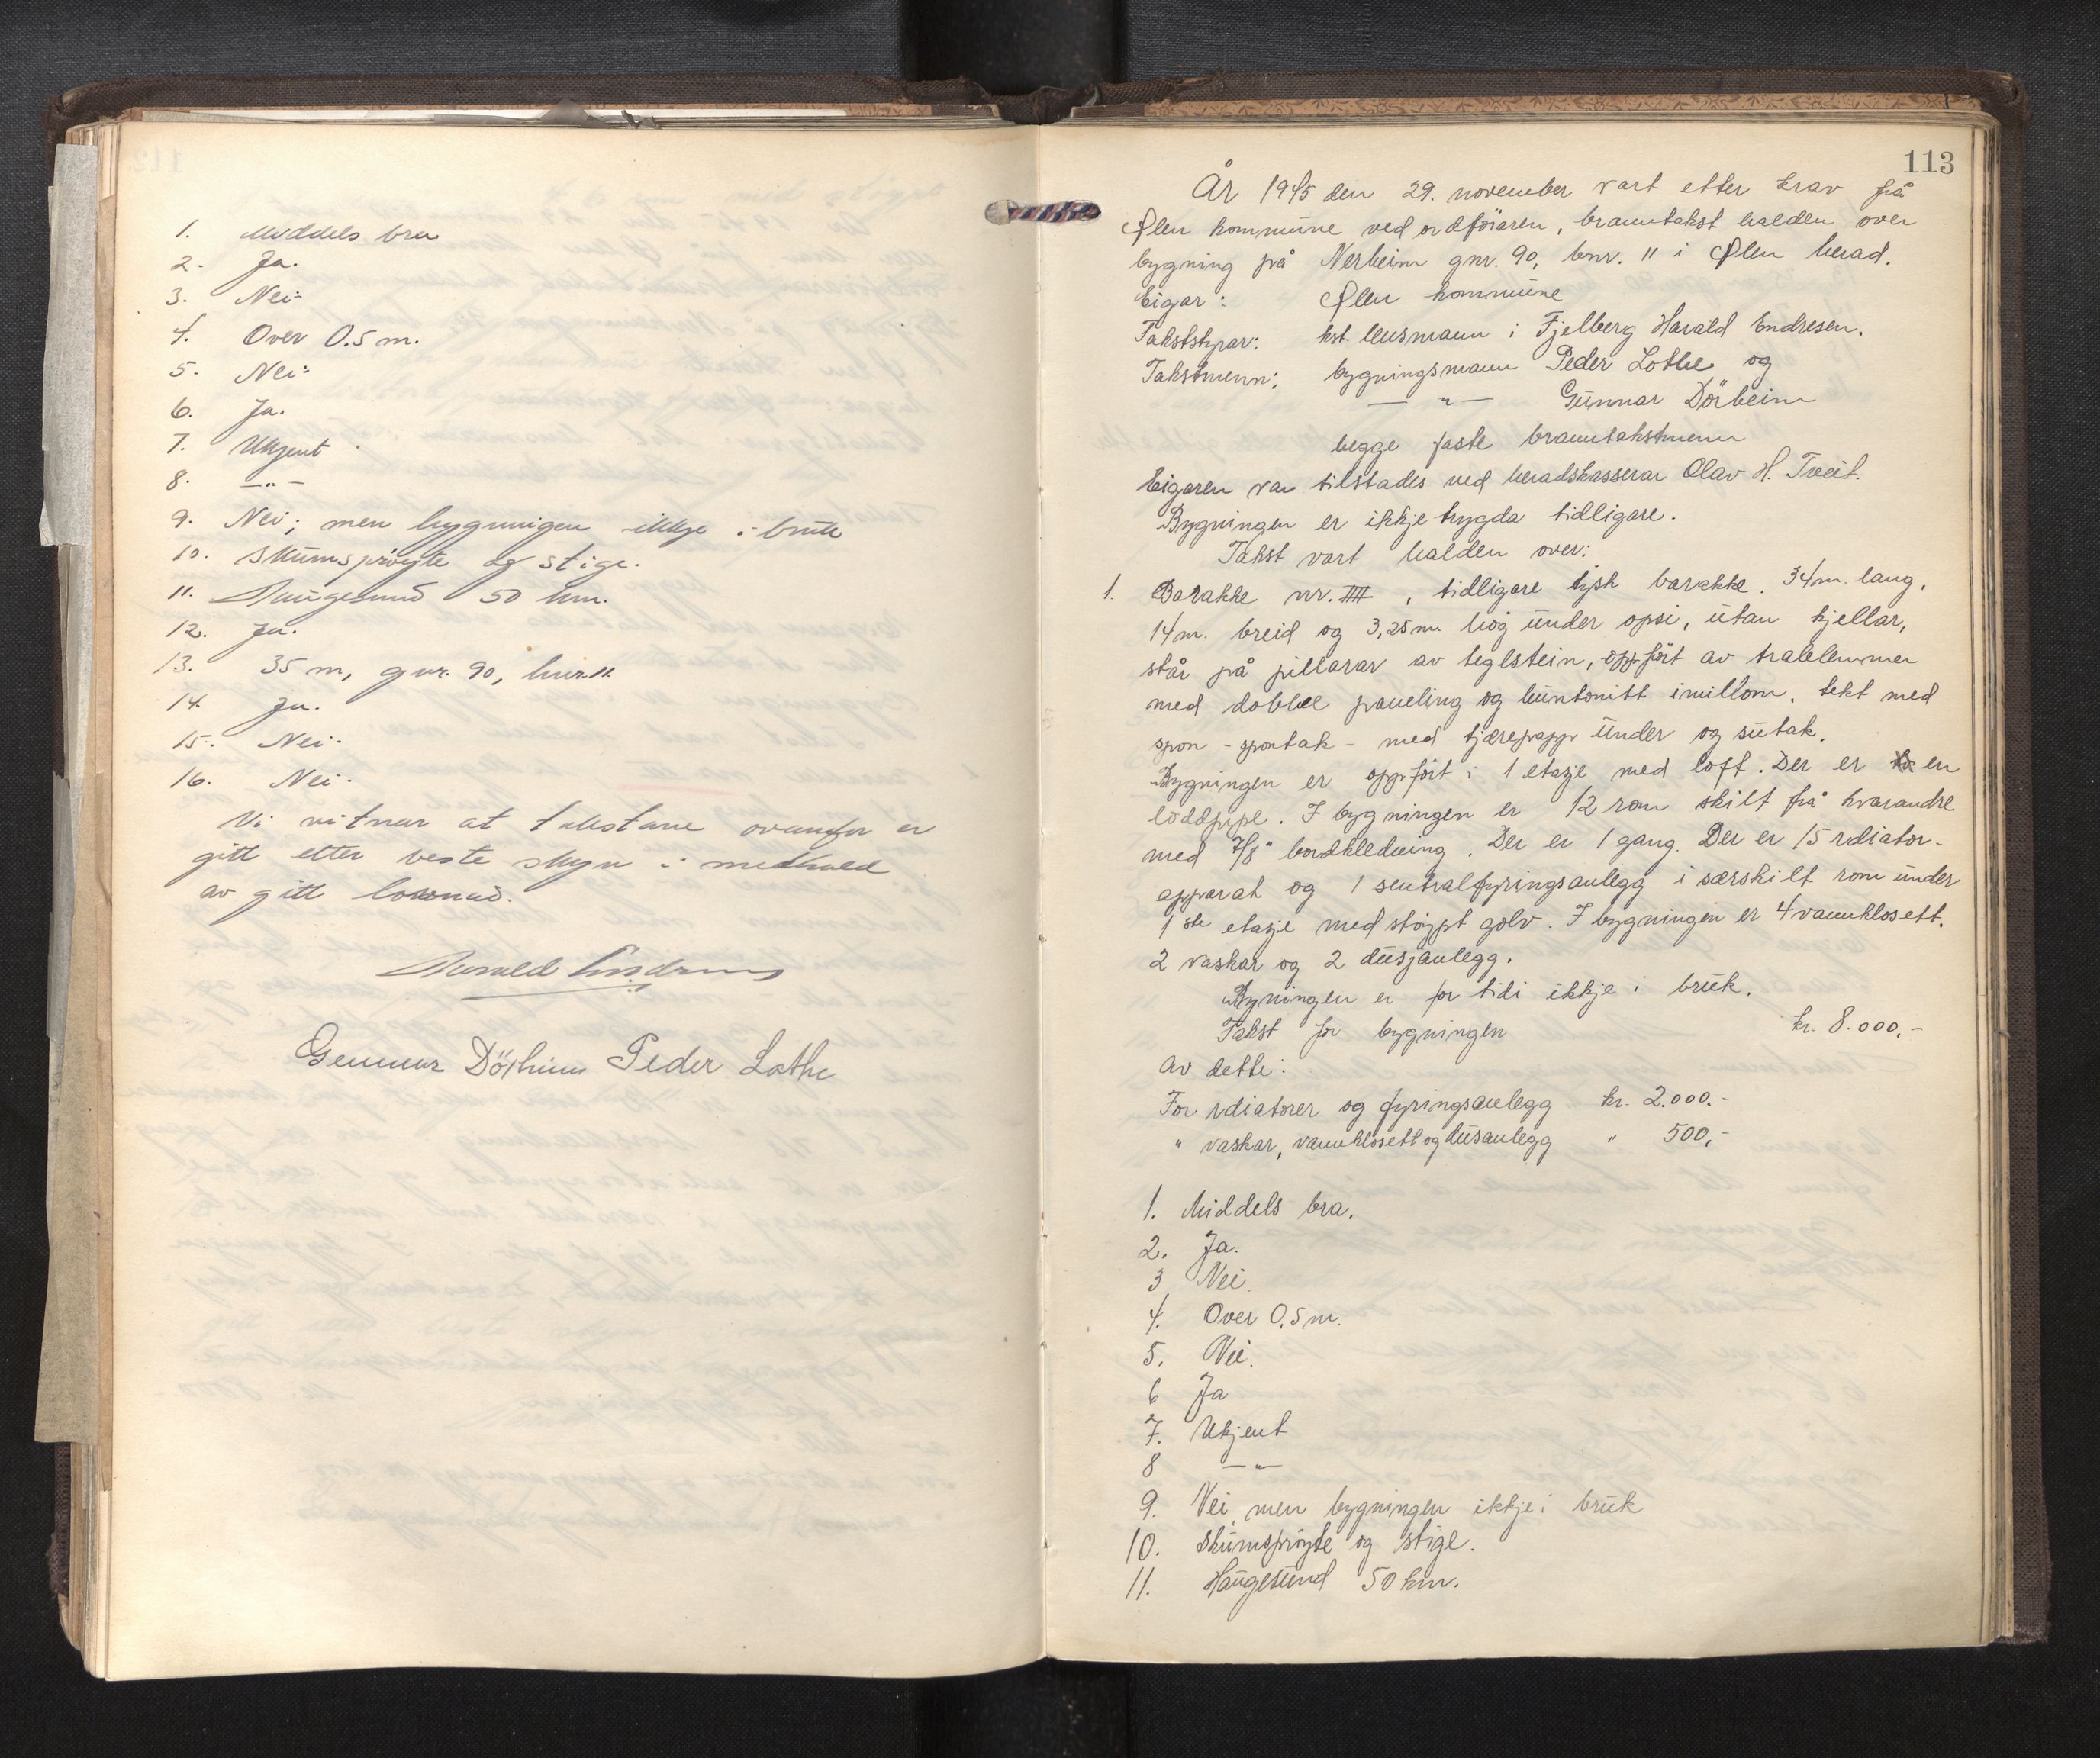 1. Middels bra
2. Ja.
3. Nei.
4. Over 0.5 m.
5. Nei.
6. Ja.
7. Ukjent
8. — " —
9. Nei; men bygningen ikkje i bruk
10. Skumsprøyte og stige.
11. Haugesund 50 km.
12. Ja.
13. 35 m, gnr. 90, bnr. 11.
14. Ja.
15. Nei.
16. Nei.
Vi vitnar at takstane ovanfor er
gitt etter beste skyn i medhald
av gitt lovnad.
Harald Endresen
Gunnar Dörheim Peder Lothe
113
År 1945 den 29. november vart etter krav frå
Ølen kommune ved ordføraren, branntakst halden over
bygning på Nerheim gnr. 90, bnr. 11 i Ølen herad.
Eigar: Ølen kommune
Takststyrar: kst. lensmann i Fjelberg Harald Endresen.
Takstmenn: bygningsmann Peder Lothe og
— " — Gunnar Dörheim
begge faste branntakstmenn
Eigaren var tilstades ved heradskasserar Olav H. Tveit.
Bygningen er ikkje trygda tidligare.
Takst vart halden over:
1. Barakke nr. IIII, tidligare tysk barakke. 34 m. lang,
14 m. breid og 3,25 m. høg under opsi, utan kjellar,
står på pillarar av teglstein, oppført av tralelemmer
med dobbel paneling og huntonitt imillom, tekt med
spon - spontak - med tjærepapp under og sutak.
Bygningen er oppført i 1 etasje med loft. Der er en
loddpipe. I bygningen er 12 rom skilt frå kvarandre
med 7/8" bordkledning. Der er 1 gang. Der er 15 rdiator-
apparat og 1 sentralfyringsanlegg i særskilt rom under
1ste etasje med støypt golv. I bygningen er 4 vannklosett,
2 vaskar og 2 dusjanlegg.
Bygningen er for tidi ikkje i bruk.
Takst for bygningen kr. 8.000,-
Av dette:
For rdiatorer og fyringsanlegg kr. 2.000.-
" vaskar, vannklosett og dusanlegg " 500,-
1. Middels bra.
2. Ja.
3 Nei.
4. Over 0,5 m.
5. Nei.
6 Ja
7. Ukjent
8 — " —
9. Nei, men bygningen ikkje i bruk
10. Skumsprøyte og stige.
11. Haugesund 50 km.